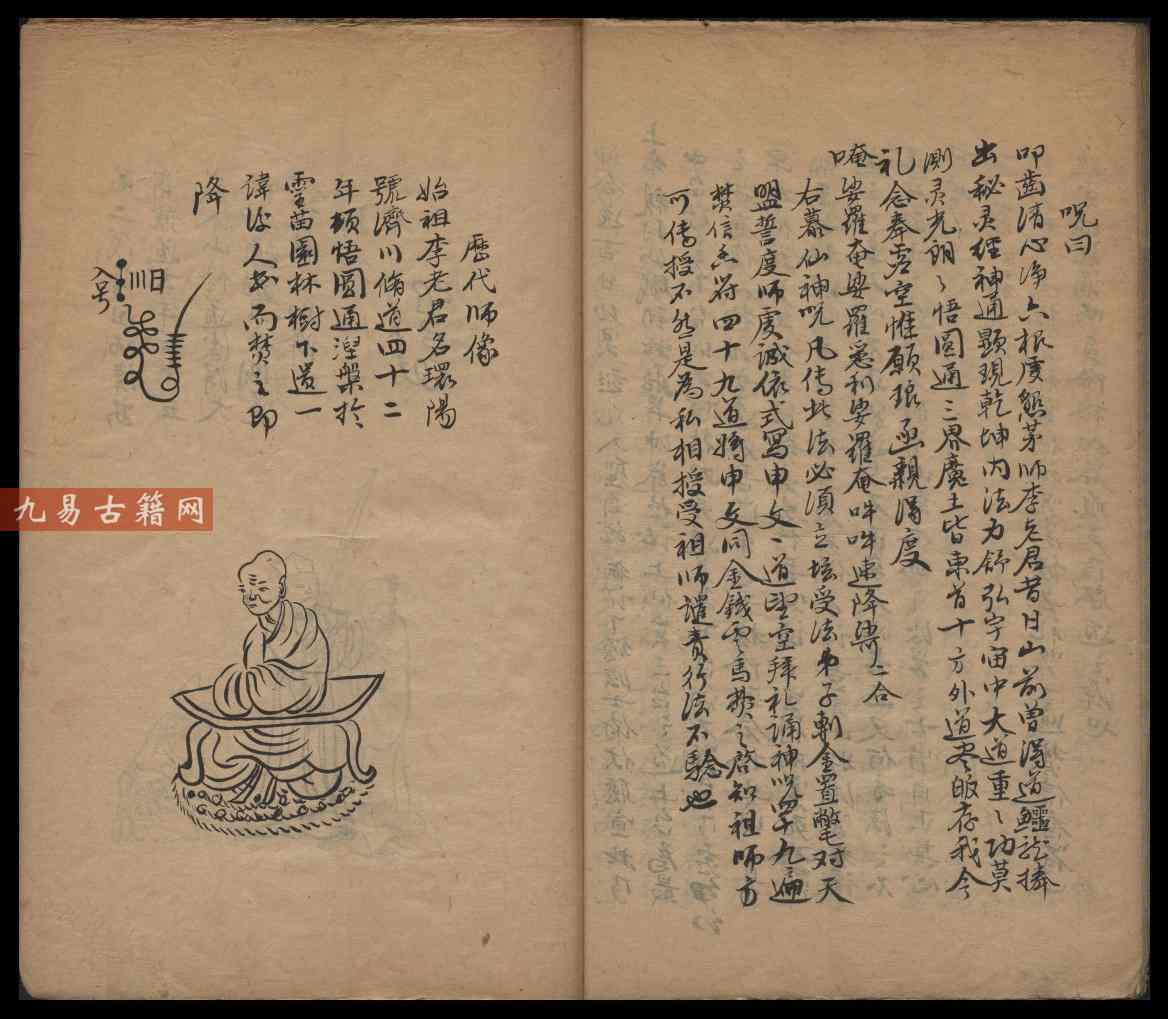 呪曰
叩齒清心净六根虔㤗茅師李老君昔日山前曾得道鱷龍擄
出秘灵經神通顯現乾坤內法力舒弘宇宙中大道重〻功莫
測灵光朗〻悟圓通三界魔王皆束首十方外道尽皈存我今
礼念奉虛空惟願狼函親得度
唵娑羅奄娑羅悉利娑羅奄吽吽速降臨 二合
右慕仙神呪凡傳此法必須立坛受法弟子剌金置幣对天
盟誓度師虔誠依式寫申文一道望空拜礼誦神呪四十九遍
焚信香符四十九道將申文同金錢雲馬焚之啓知祖師方
可傳授不然是為私相授受祖師譴責行法不驗也
歷代师像
始祖李老君名環陽
號濟川脩道四十二
年頓悟圓通涅槃扵
雲苗園林樹下遺一
諱
人
而焚之即
降
入号
九易古籍网